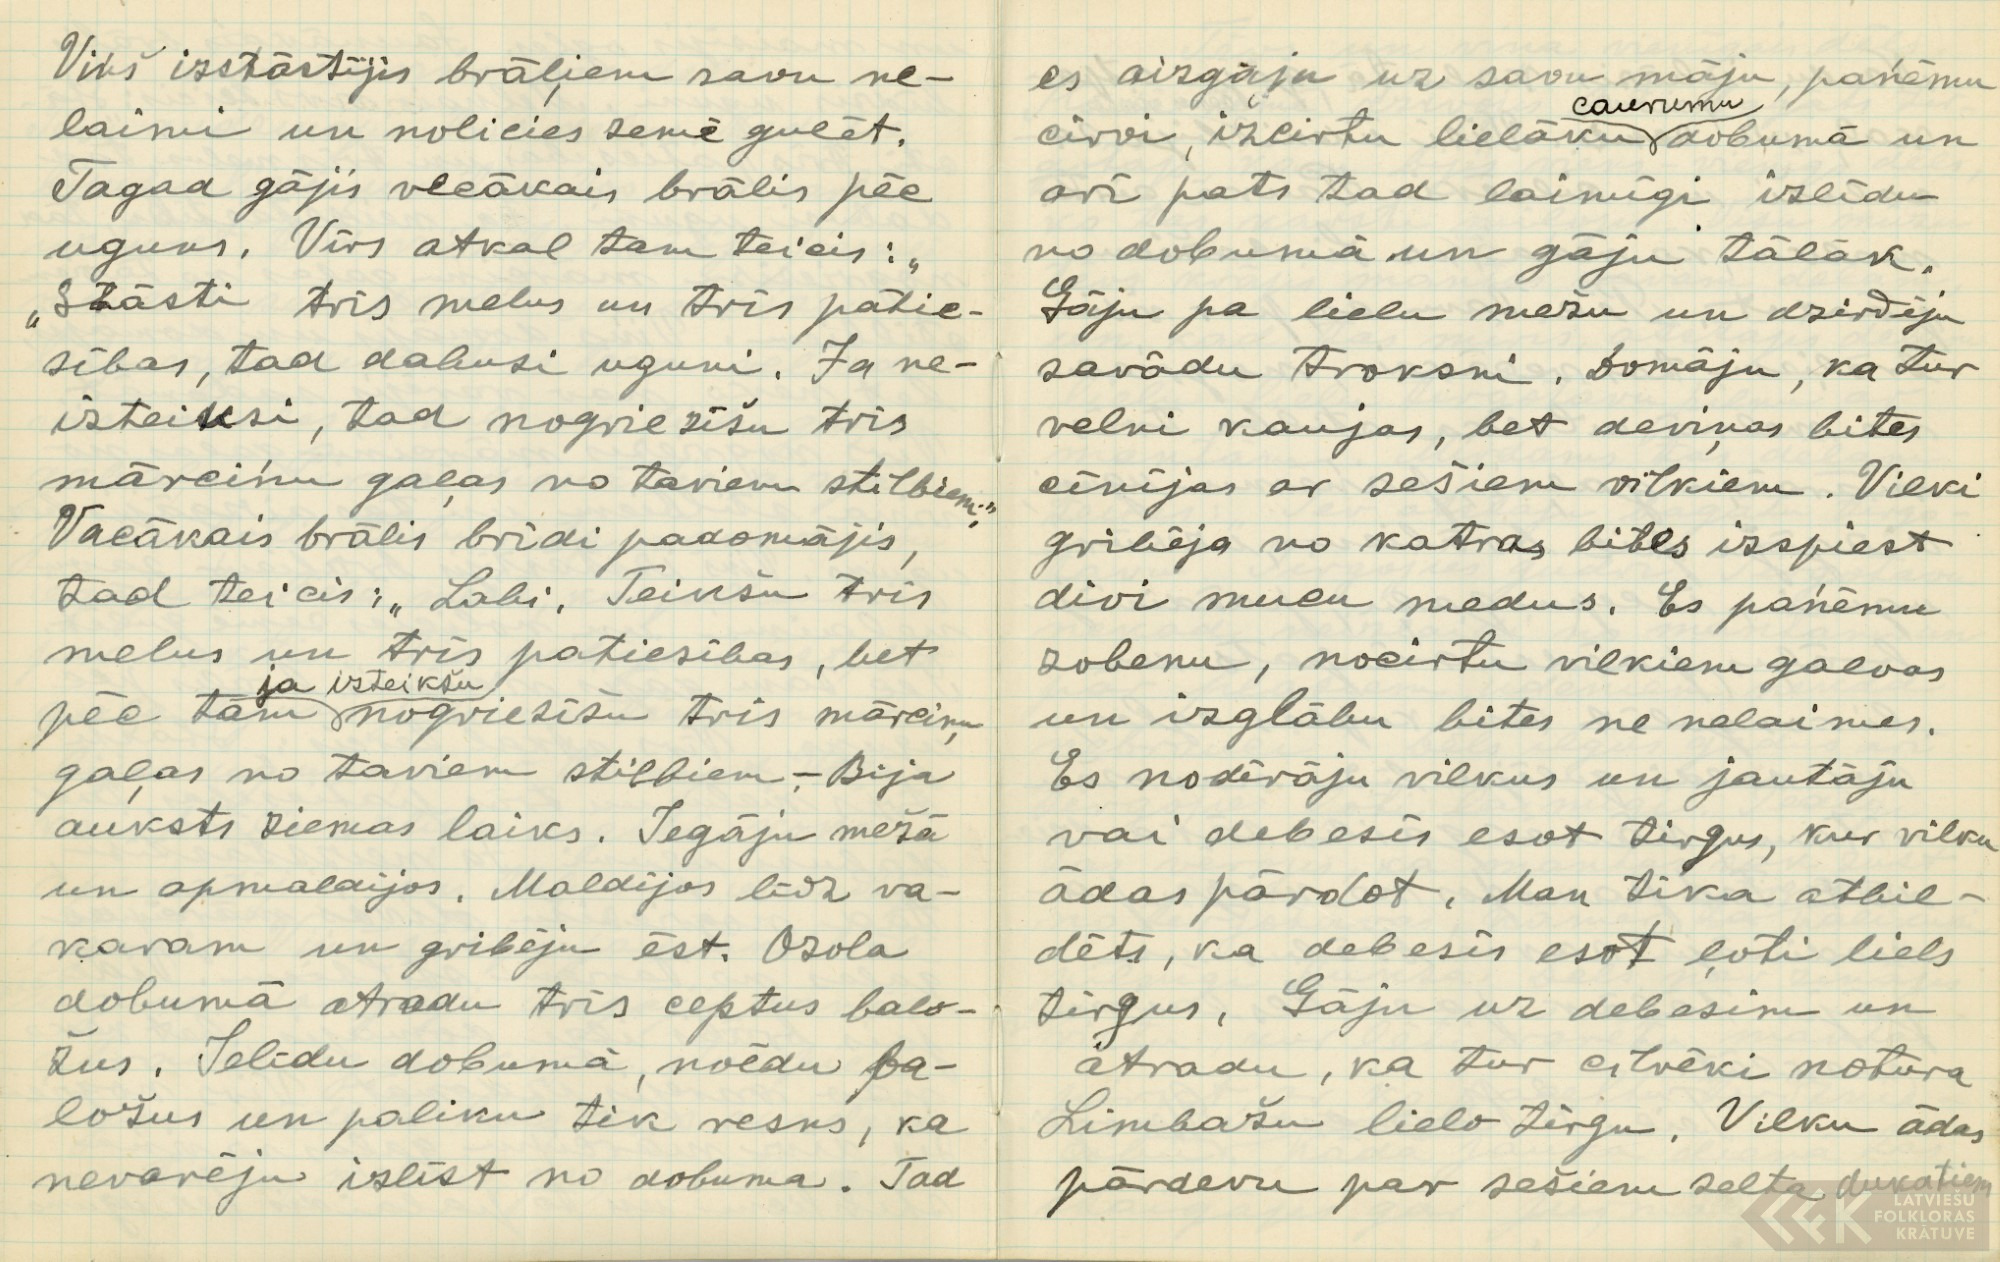 Viņš izstāstījis brāļiem savu ne-
laimi un nolicies zemē gulēt.
Tagad gājis vecākais brālis pēc
uguns. Vīrs atkal tam teicis: „
„Stāsti trīs melus un trīs patie-
sības, tad dabusi uguni. Ja ne-
izteiksi, tad nogriezīšu trīs
mārciņu gaļas no taviem stilbiem."
Vacākais brālis brīdi padomājis,
tad teicis: „ Labi. Teikšu trīs
melus un trīs patiesības, bet
ja izteikšu
pēc tam nogriezīšu trīs mārciņu
gaļas no taviem stilbiem. – Bija
auksts ziemas laiks. Iegāju mežā
un apmaldījos. Maldījos līdz va-
karam un gribēju ēst. Ozola
dobumā atradu trīs ceptus balo-
žus. Ielīdu dobumā, noēdu ba-
ložus un paliku tik resns, ka
nevarēju izlīst no dobuma. Tad
es aizgāju uz savu māju, paņēmu
caurumu
cirvi, izcirtu lielāku dobumā un
arī pats tad laimīgi izlīdu
no dobumā un gāju tālāk.
Gāju pa lielu mežu un dzirdēju
savādu troksni. Domāju, ka tur
velni kaujas, bet deviņas bites
cīnījas ar sešiem vilkiem. Vilki
gribēja no katras bites izspiest
divi mucu medus. Es paņēmu
zobenu, nocirtu vilkiem galvas
un izglābu bites ne nelaimes.
Es nodīrāju vilkus un jautāju
vai debesīs esot tirgus, kur vilku
ādas pārdot. Man tika atbil-
dēts, ka debesīs esot ļoti liels
tirgus. Gāju uz debesim un
atradu, ka tur cilvēki notura
Limbažu lielo tirgu. Vilku ādas
pārdevu par sešiem zelta dukatiem
LATVIEŠU
FOLKLORAS
KRĀTUVE